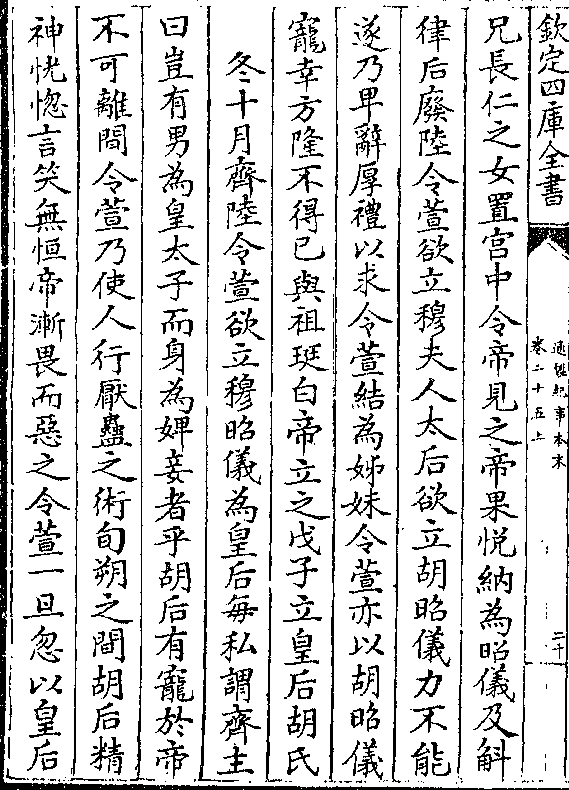 欽定四庫全書
通鑑紀事本末
卷二十五上
二十
兄長仁之女置宮中令帝見之帝果悅納為昭儀及斛
律后廢陸令萱欲立穆夫人太后欲立胡昭儀力不能
遂乃卑辭厚禮以求令萱結為姊妹令萱亦以胡昭儀
寵幸方隆不得已與祖珽白帝立之戊子立皇后胡氏
冬十月齊陸令萱欲立穆昭儀為皇后每私謂齊主
曰豈有男為皇太子而身為婢妾者乎胡后有寵於帝
不可離間令萱乃使人行厭蠱之術旬朔之間胡后精
神恍惚言笑無恒帝漸畏而惡之令萱一旦忽以皇后